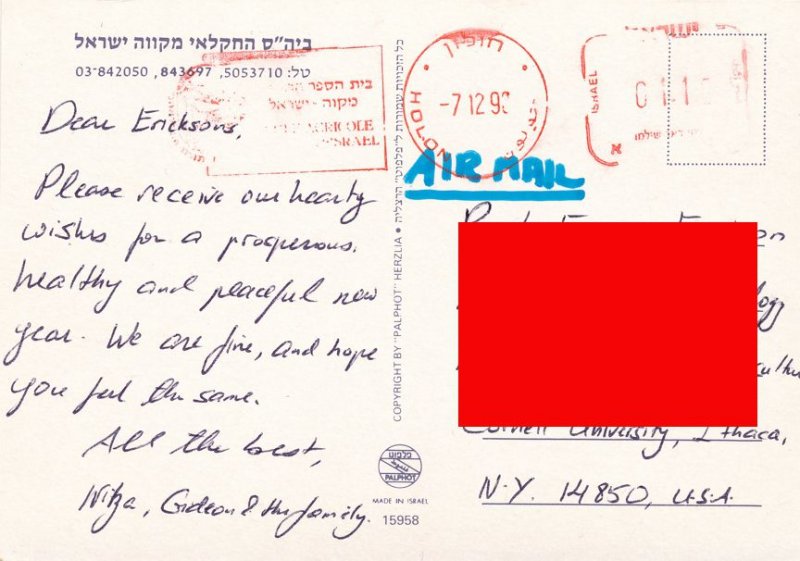 ביה"ס החקלאי מקווה ישראל
טל: 5053710, 843697, 03-842050
Dear Ericksons,
Please receive our hearty
wishes for a prosperous,
healthy and peaceful new
year. We are fine, and hope
you feel the same.
All the best,
Nitza, Gideon & the family.
בית הספר
מקוה - ישראל
AGRICOLE
ISRAEL
HOLON
-7 12 9
ISRAEL
א
AIR MAIL
COPYRIGHT BY "PALPHOT" HERZLIA • כל הזכויות שמורות ל"פלפוט" הרצליה
פלפוט
PALPHOT
MADE IN ISRAEL
15958
Cornell University, Ithaca,
N.Y. 14850, U.S.A.